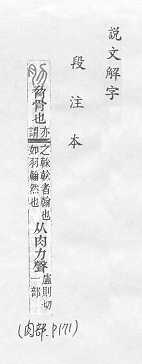 説文解字
段注本
肋 脅骨也亦謂之榦榦者翰也如羽翰然也从肉力聲盧則切一部
(肉部 P171)